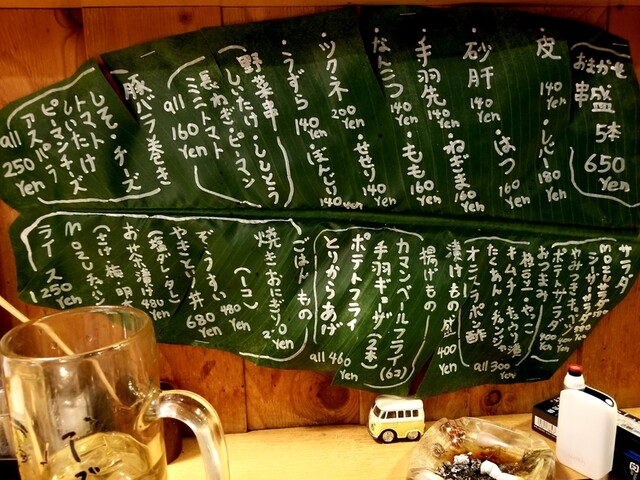 おまかせ
串盛
5本
650
Yen
皮
140
Yen
・レバー
180
Yen
・砂肝
140
Yen
・はつ
160
Yen
・手羽先
140
Yen
・ねぎま
160
Yen
・なんこつ
140
Yen
・もも
160
Yen
・ツクネ
200
Yen
・せせり
140
Yen
・うずら
140
Yen
・ぼんじり
140
Yen
野菜串
しいたけ・ししとう
長ねぎ・ピーマン
ミニトマト
all
160
Yen
豚バラ巻き
しそ・チーズ
トマト
しいたけ
ピーマンチーズ
アスパラ
all
250
Yen
サラダ
シーザーサラダ
やみつきキャベツ
ポテトサラダ
おつまみ
梅豆・やっこ
キムチ・キュウリ漬
たくあん・チャンジャ
オニスラポン酢
all 300
Yen
漬けもの盛
400
Yen
揚げもの
カマンベールフライ
(6コ)
手羽ギョーザ(2本)
ポテトフライ
とりからあげ
all 460
Yen
ごはんもの
焼きおむすび
(一コ)
ぞうすい
480
Yen
やきとり丼
680
Yen
(塩ダレ・タレ)
お茶漬け
480
Yen
(さけ・梅・明太)
ライス
250
Yen